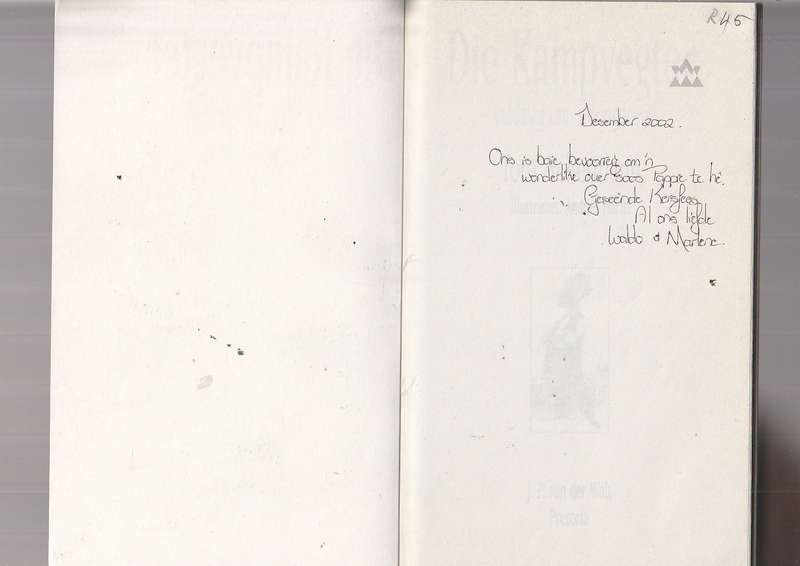 R45
Desember 2002.
Ons is baie bevoorreg om 'n
wonderlike ouer soos Pappie te hê.
Geseënde Kersfees
Al ons liefde
Waldo & Marlene.
Die Kampvegter
J. P. van der Walt
Pretoria